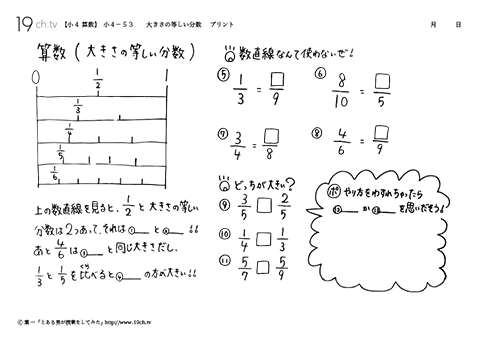 19ch.tv 【小4 算数】 小4-53 大きさの等しい分数 プリント 月 日
算数 (大きさの等しい分数)
0 1/2 1
1/3
1/4
1/5
1/6
上の数直線を見ると、1/2と大きさの等しい
分数は2つあって、それは①__と②__!!
あと4/6は③__と同じ大きさだし、
1/3と1/5を比べると④__の方が大きい!!
くら
数直線なんて使わないぜ!
⑤ 1/3 = □/9
⑥ 8/10 = □/5
⑦ 3/4 = □/8
⑧ 4/6 = □/9
どっちが大きい?
⑨ 3/5 □ 2/5
⑩ 1/4 □ 1/3
⑪ 5/7 □ 5/9
ポ やり方をわすれちゃったら
⑫__か⑬__を思いだそう!
© 葉一「とある男が授業をしてみた」http://www.19ch.tv